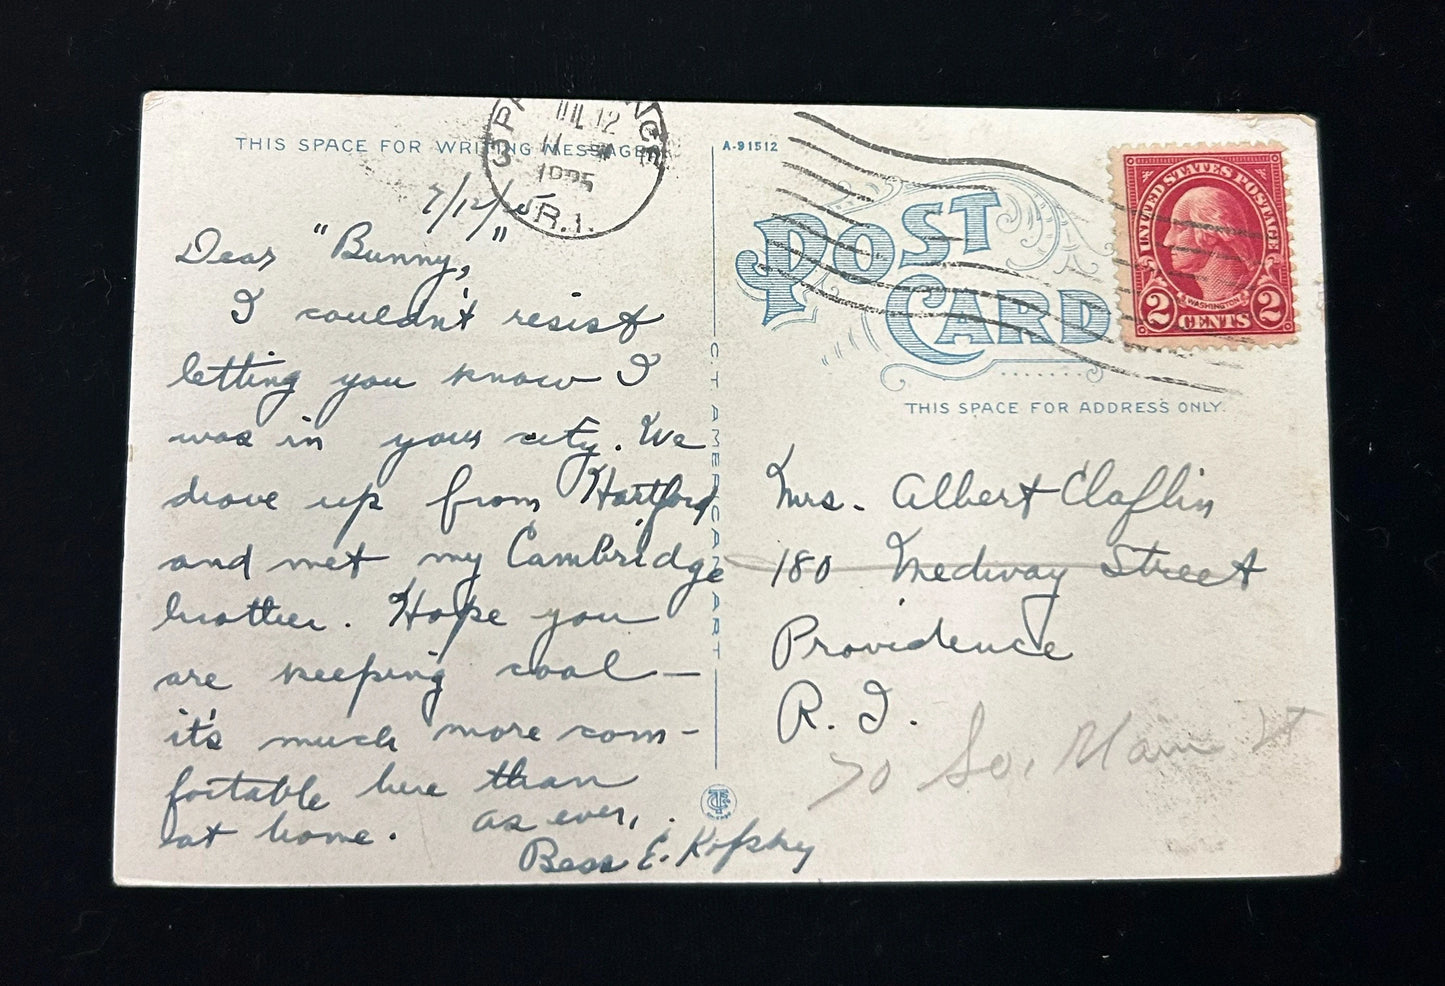 THIS SPACE FOR WRITING MESSAGE
JUL 12
3
1925
R.I.
7/12/25
Dear "Bunny,"
I couldn't resist
letting you know I
was in your city. We
drove up from Hartford
and met my Cambridge
brother. Hope you
are keeping cool —
it's much more com-
fortable here than
at home. as ever,
Bess E. Kofsky
C. T. AMERICAN ART
A-91512
POST
CARD
THIS SPACE FOR ADDRESS ONLY.
UNITED STATES POSTAGE
WASHINGTON
2 CENTS 2
Mrs. Albert Claflin
180 Medway Street
Providence
R. I.
70 So. Main St